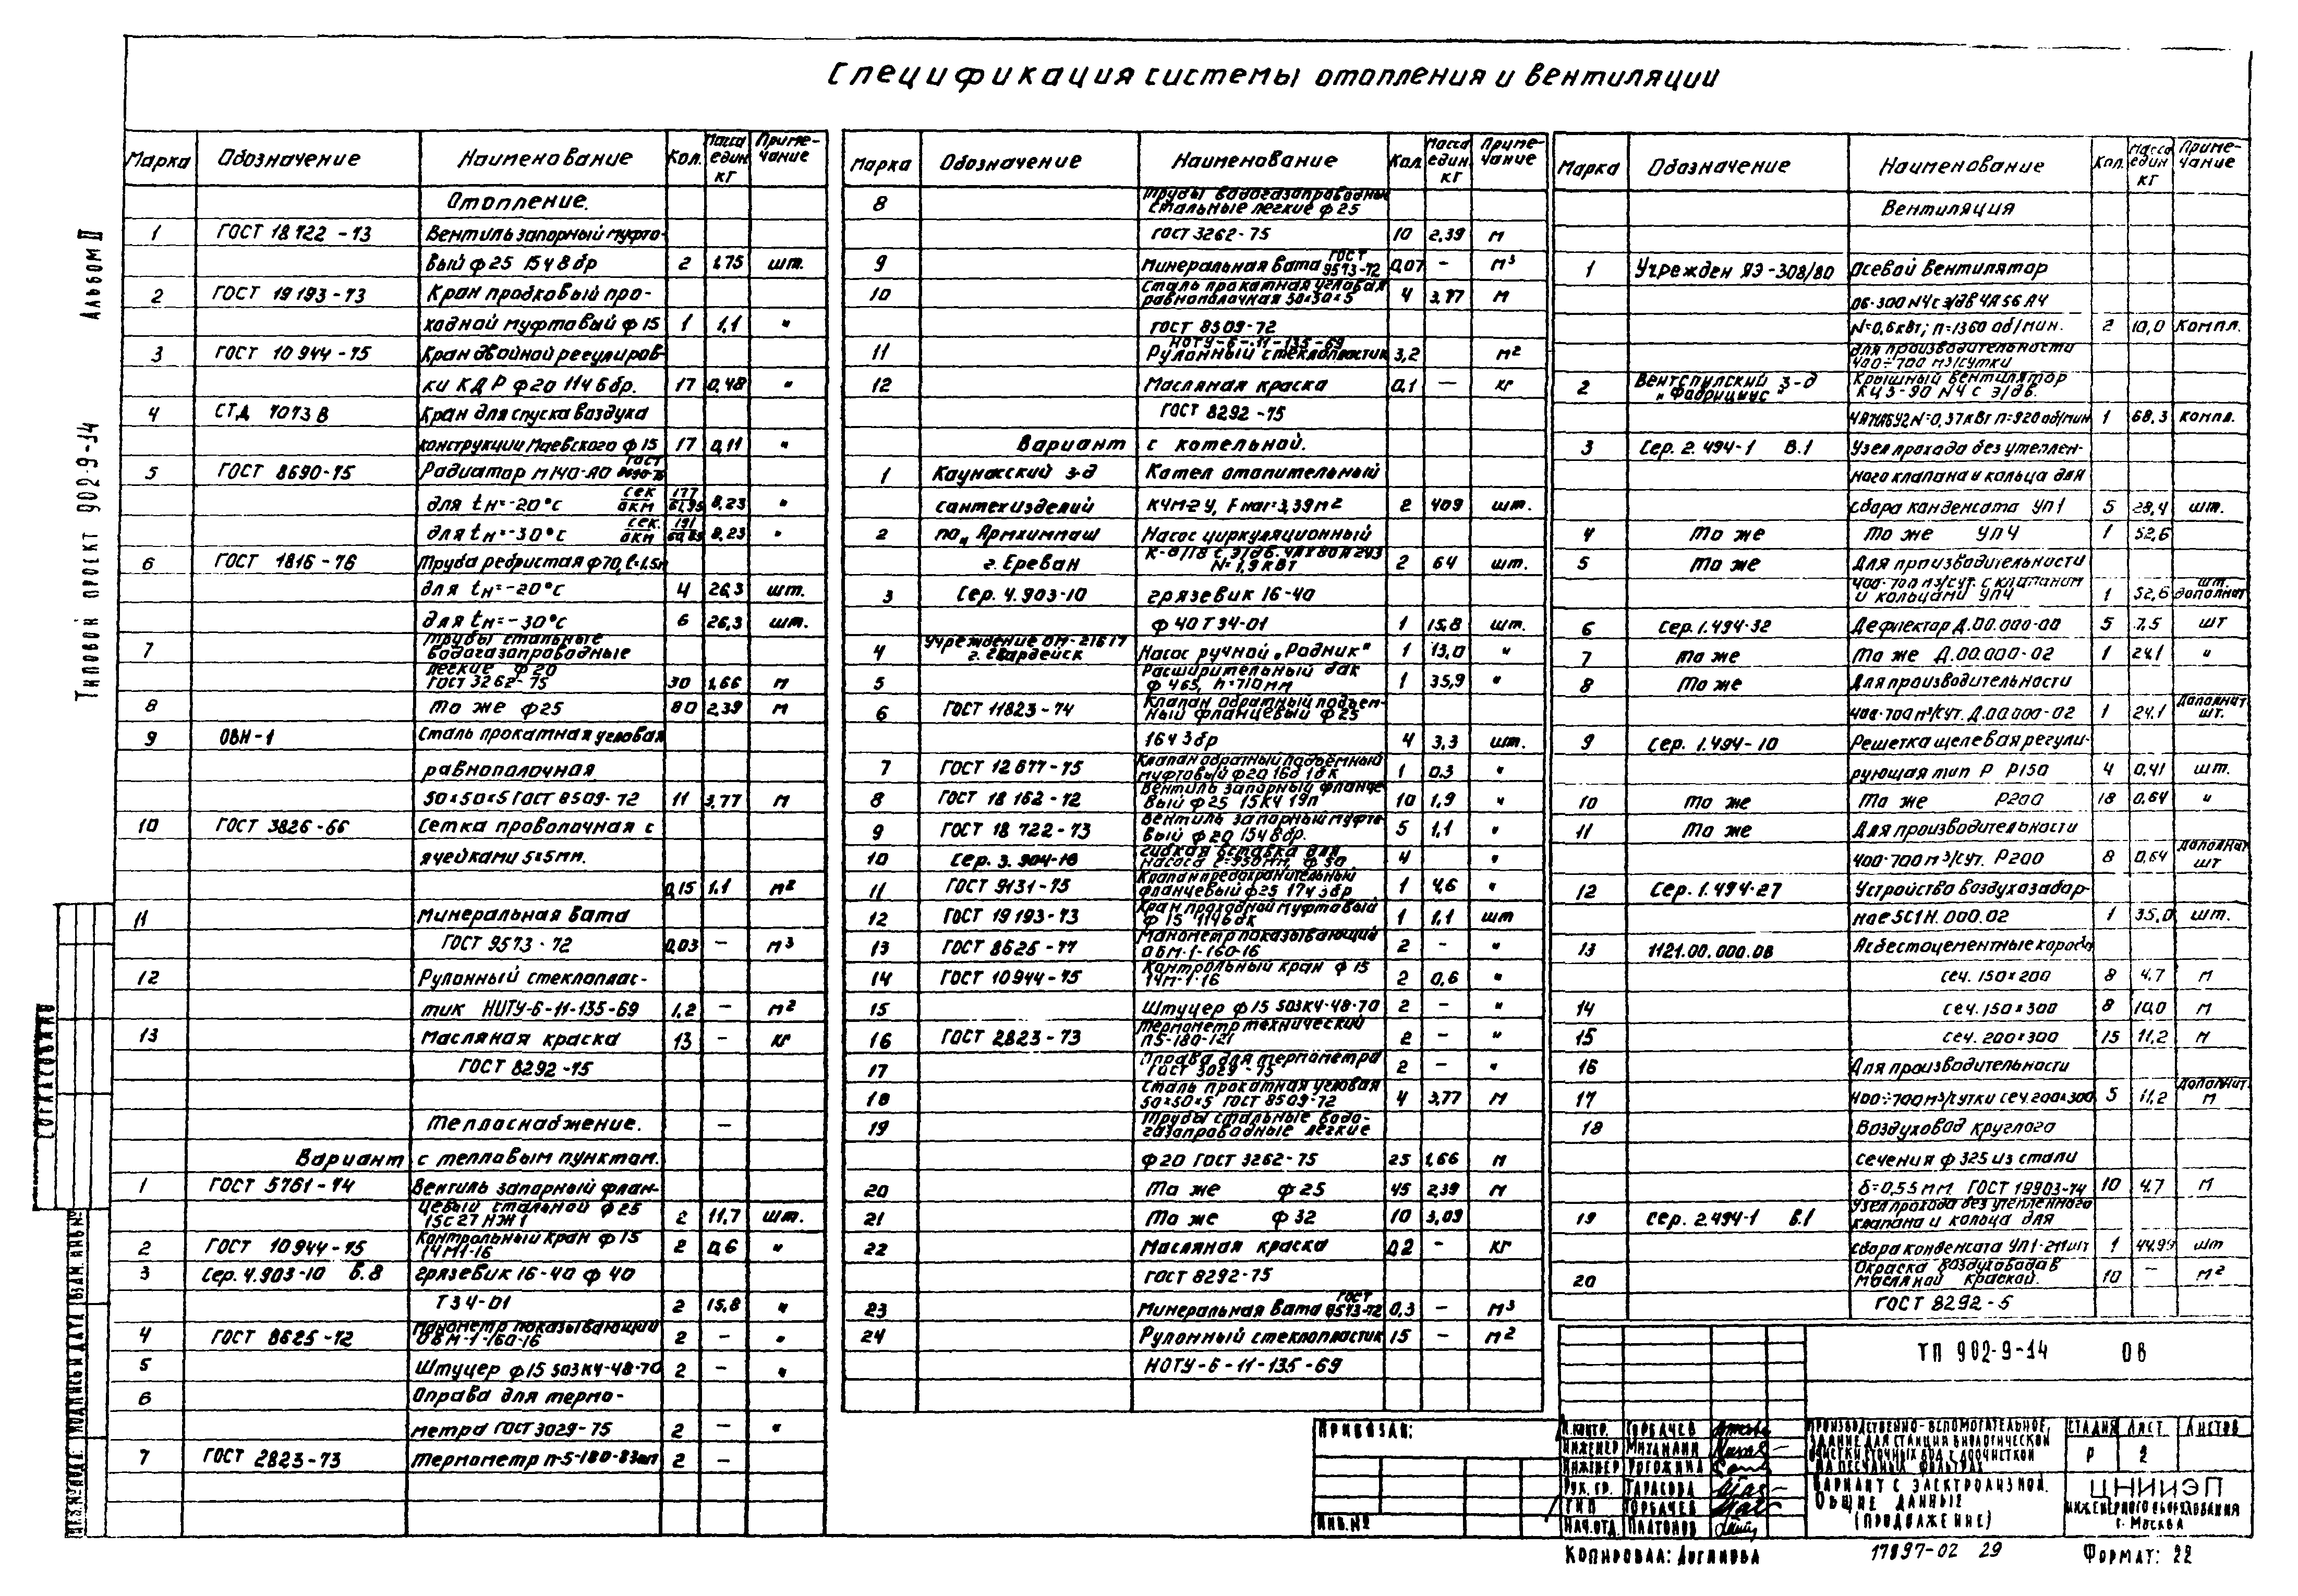 Спецификация системы отопления и вентиляции
Альбом II
Типовой проект 902-9-14
Марка Обозначение Наименование Кол. Масса един кг Примечание
Отопление.
1 ГОСТ 18722-73 Вентиль запорный муфто-
вый ф25 15ч8бр 2 1,75 шт.
2 ГОСТ 19193-73 Кран пробковый про-
ходной муфтовый ф15 1 1,1 "
3 ГОСТ 10944-75 Кран двойной регулиров-
ки КДР ф20 11ч6бр. 17 0,48 "
4 СТД 7073В Кран для спуска воздуха
конструкции Маевского ф15 17 0,11 "
5 ГОСТ 8690-75 Радиатор М140-АО ГОСТ 8690-75
для tн=-20°С сек экм 177 8,23 "
для tн=-30°С сек. экм 191 8,23 "
6 ГОСТ 1816-76 Труба ребристая ф70, ℓ=1,5м
для tн=-20°С 4 26,3 шт.
для tн=-30°С 6 26,3 шт.
7 Трубы стальные
водогазопроводные
легкие ф20
ГОСТ 3262-75 30 1,66 м
8 То же ф25 80 2,39 м
9 ОВН-1 Сталь прокатная угловая
равнополочная
50х50х5 ГОСТ 8509-72 11 3,77 м
10 ГОСТ 3826-66 Сетка проволочная с
ячейками 5х5мм.
0,15 1,1 м2
11 Минеральная вата
ГОСТ 9573-72 0,03 - м3
12 Рулонный стеклоплас-
тик НИТУ-6-11-135-69 1,2 - м2
13 Масляная краска 13 - кг
ГОСТ 8292-75
Теплоснабжение. -
Вариант с тепловым пунктом.
1 ГОСТ 5761-74 Вентиль запорный флан-
цевый стальной ф25
15с27НЖ1 2 11,7 шт.
2 ГОСТ 10944-75 Контрольный кран ф15
14М1-16 2 0,6 "
3 Сер. 4.903-10 в.8 Грязевик 16-40 ф40
Т34-01 2 15,8 "
4 ГОСТ 8625-72 Манометр показывающий
ОБМ-1-160-16 2 - "
5 Штуцер ф15 503К4-48-70 2 - "
6 Оправа для термо-
метра ГОСТ 3029-75 2 - "
7 ГОСТ 2823-73 Термометр 2 -
Марка Обозначение Наименование Кол. Масса един кг Примечание
8 Трубы водогазопроводные
стальные легкие ф25
ГОСТ 3262-75 10 2,39 м
9 Минеральная вата ГОСТ 9573-72 0,07 - м3
10 Сталь прокатная угловая
равнополочная 50х50х5 4 3,77 м
ГОСТ 8509-72
11 НОТУ-6-11-135-69
Рулонный стеклопластик 3,2 м2
12 Масляная краска 0,1 - кг
ГОСТ 8292-75
Вариант с котельной.
1 Каунасский з-д Котел отопительный
сантехизделий КЧМ-2У, Fнаг=3,39м2 2 409 шт.
2 по „Армхиммаш Насос циркуляционный
г. Ереван К-8/18 с эл/дв. 4АХ80А2У3
N=1,9кВт 2 64 шт.
3 Сер. 4.903-10 Грязевик 16-40
ф40 Т34-01 1 15,8 шт.
4 Учреждение ОМ-216/7
г. Гвардейск Насос ручной „Родник" 1 13,0 "
5 Расширительный бак
ф465, h=710мм 1 35,9 "
6 ГОСТ 11823-74 Клапан обратный подъем-
ный фланцевый ф25
16ч3бр 4 3,3 шт.
7 ГОСТ 12677-75 Клапан обратный подъемный
муфтовый ф20 16б1бк 1 0,3 "
8 ГОСТ 18162-72 Вентиль запорный фланце
вый ф25 15КЧ19п 10 1,9 "
9 ГОСТ 18722-73 Вентиль запорный муфто-
вый ф20 15ч8бр. 5 1,1 "
10 Сер. 3.904-16 Гибкая вставка для
насоса ℓ=950мм, ф50 4 "
11 ГОСТ 9131-75 Клапан предохранительный
фланцевый ф25 17ч3бр 1 4,6 "
12 ГОСТ 19193-73 Кран проходной муфтовый
ф15 11ч6бк 1 1,1 шт
13 ГОСТ 8625-77 Манометр показывающий
ОБМ-1-160-16 2 - "
14 ГОСТ 10944-75 Контрольный кран ф15
14М-1-16 2 0,6 "
15 Штуцер ф15 503К4-48-70 2 - "
16 ГОСТ 2823-73 Термометр технический
П5-180-121 2 - "
17 Оправа для термометра
ГОСТ 3029-75 2 - "
18 Сталь прокатная угловая
50×50×5 ГОСТ 8509-72 4 3,77 м
19 Трубы стальные водо-
газопроводные легкие
ф20 ГОСТ 3262-75 25 1,66 м
20 То же ф25 45 2,39 м
21 То же ф32 10 3,09
22 Масляная краска 0,2 - кг
ГОСТ 8292-75
23 Минеральная вата ГОСТ 9573-72 0,3 - м3
24 Рулонный стеклопластик 15 - м2
НОТУ-6-11-135-69
Марка Обозначение Наименование Кол. Масса един кг Примечание
Вентиляция
1 Учрежден ЯЭ-308/80 Осевой вентилятор
06-300 N4 с эл/дв 4А56А4
N=0,6кВт; n=1360 об/мин. 2 10,0 Компл.
для производительности
400÷700 м3/сутки
2 Вентспилский з-д
"Фабрициус" Крышный вентилятор
КЦ3-90 N4 с эл/дв.
N=0,37кВт n=920 об/мин 1 68,3 компл.
3 Сер. 2.494-1 В.1 Узел прохода без утеплен-
ного клапана и кольца для
сбора конденсата УП1 5 29,4 шт.
4 То же То же УП4 1 52,6
5 То же Для производительности
400-700 м3/сут. с клапаном
и кольцами УП4 1 52,6 шт. дополнит
6 Сер. 1.494-32 Дефлектор Д.00.000-00 5 7,5 шт
7 То же То же Д.00.000-02 1 24,1 "
8 То же Для производительности
400-700 м3/сут. Д.00000-02 1 24,1 дополнит шт.
9 Сер. 1.494-10 Решетка щелевая регули-
рующая тип Р Р150 4 0,41 шт.
10 То же То же Р200 18 0,64 "
11 То же Для производительности
400-700 м3/сут. Р200 8 0,64 дополнит шт
12 Сер. 1.494-27 Устройство воздухозабор-
ное 5С1Н.000.02 1 35,0 шт.
13 1121.00.000.0В Асбестоцементные короба
сеч. 150×200 8 4.7 м
14 сеч. 150×300 8 10,0 м
15 сеч. 200×300 15 11,2 м
16 Для производительности
17 400÷700м3/сутки сеч. 200х300 5 11,2 дополнит. м
18 Воздуховод круглого
сечения ф325 из стали
δ=0,55мм ГОСТ 19903-74 10 4.7 м
19 Сер. 2.494-1 в.1 Узел прохода без утепленного
клапана и кольца для
сбора конденсата 1 44,99 шт
20 Окраска воздуховодов
масляной краской. 10 - м2
ГОСТ 8292-5
Согласовано
Инв.№подл. Подпись и дата Взам.инв.№
ТП 902-9-14 ОВ
Привязан:
Инв.№
Н.контр. Горбачев
Инженер
Инженер Рогожина
Рук. гр. Тарасова
ГИП Горбачев
Нач.отд. Платонов
Производственно-вспомогательное,
здание для станции биологической
очистки сточных вод с доочисткой
на песчаных фильтрах
Вариант с электролизной.
Общие данные
(продолжение)
Стадия Лист Листов
Р 2
ЦНИИЭП
инженерного оборудования
г. Москва
Копировал: Логинова 17897-02 29 Формат: 22